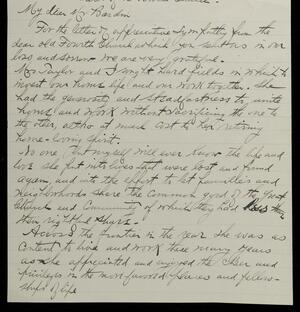 My dear Mr Bardin
For the letter of appreciative sympathy from the
dear old Fourth Church which you sent us in our
loss and sorrow we are very grateful.
Mrs Taylor and I sought hard fields in which to
invest our home life and our work together. She
had the generosity and steadfastness to unite
home and work without sacrificing the one to
the other, altho at much cost to her retiring
home-loving spirit.
No one but myself will ever know the life and
love she put into lives that were lost and found
again and into the effort to get families and
neighborhoods share the common good of the
Church and Community of which they had less than
their rightful share.
Across the frontier in the rear she was as
content to live and work these many years
as she appreciated and enjoyed the cheer and
privileges in the more favored places and fellow-
ships of life